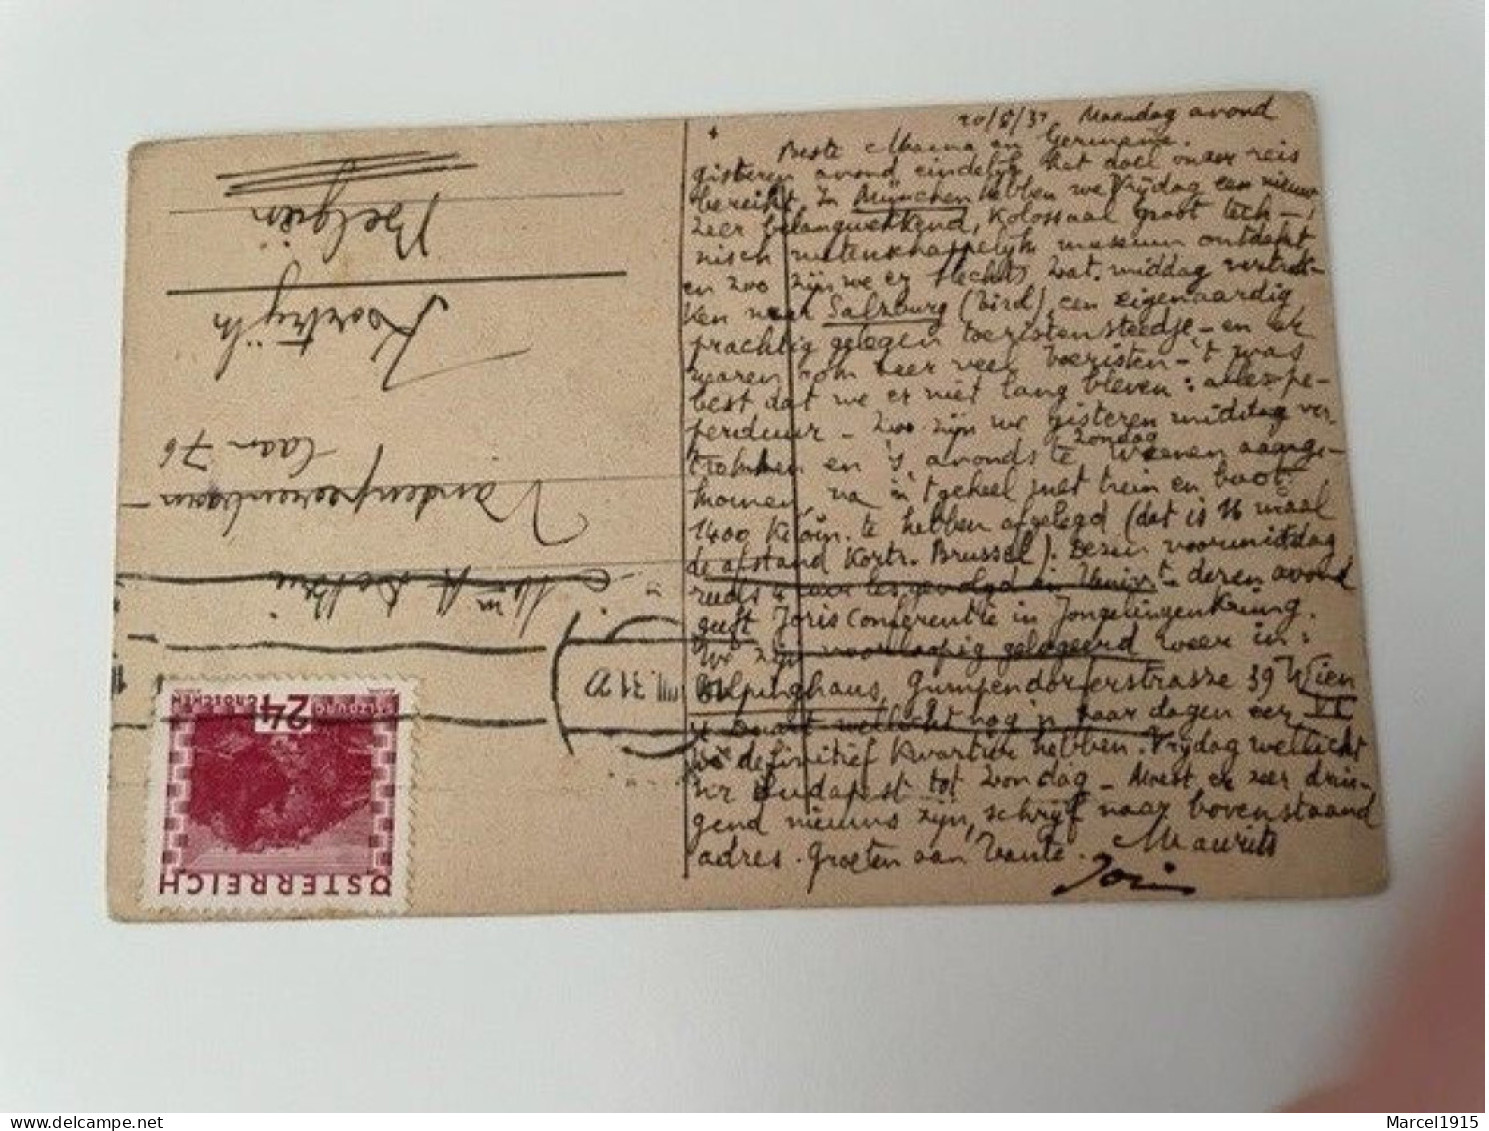 20/8/31 Maandag avond
Beste Mama en Germaine.
gisteren avond eindelijk het doel onzer reis
bereikt. In München hebben we Vrijdag een nieuw
zeer belangwekkend, Kolossaal groot tech-
nisch wetenschappelijk museum ontdekt
en zoo zijn we er slechts Zat. middag vertrok-
ken naar Salzburg (Tirol), een eigenaardig
prachtig gelegen toeristensteedje - en er
waren ook zeer veel toeristen - 't was
best dat we er niet lang bleven: alles pe-
perduur - Zoo zijn we gisteren middag ver
trokken en 's avonds te Weenen aange-
Zondag
komen, na in 't geheel met trein en boot
1400 Kilom. te hebben afgelegd (dat is 16 maal
de afstand Kortr. Brussel). Dezen voormiddag
reeds 4 uur les gevolgd in Univ. - deren avond
geeft Joris Conferentie in Jongelingenkring.
We zijn voorloopig gelogeerd weer in:
Kolpinghaus, Gumpendorferstrasse 39 Wien
't Duurt wellicht nog 'n paar dagen eer VI
we definitief kwartier hebben. Vrijdag wellicht
naar Budapest tot Zondag - Moest er zeer drin-
gend nieuws zijn, schrijf naar bovenstaand
adres. Groeten aan Tante. Maurits
Joris
ÖSTERREICH
24
GROSCHEN
SALZBURG
VIII.31 20
Laan 76
Kortrijk
Belgien
delcampe.net
Marcel1915